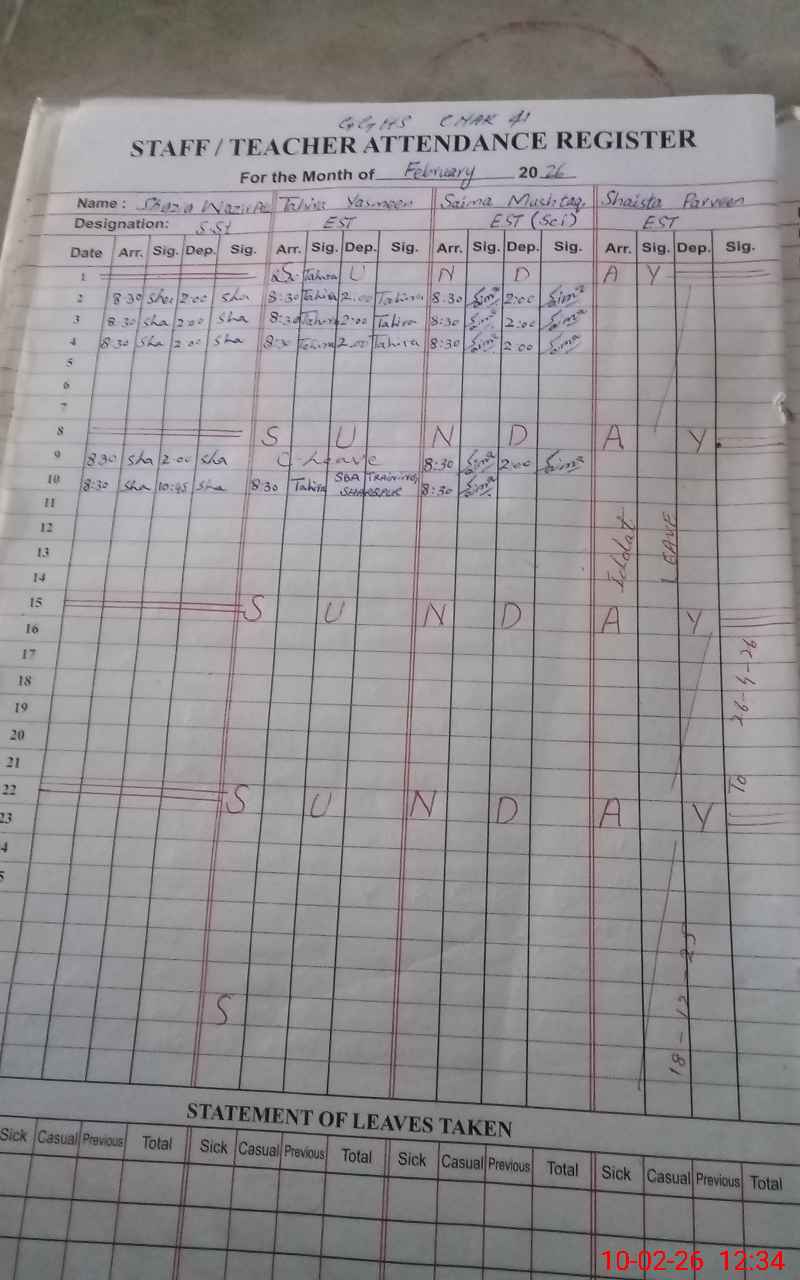 GGHS CHAK 41
STAFF / TEACHER ATTENDANCE REGISTER
For the Month of February 20 26
Name : Shazia Wazir Tahira Yasmeen Saima Mushtaq Shaista Parveen
Designation: S.St EST EST (Sci) EST
Date Arr. Sig. Dep. Sig. Arr. Sig. Dep. Sig. Arr. Sig. Dep. Sig. Arr. Sig. Dep. Sig.
1 S Tahira U N D A Y
2 8:30 Sha 2:00 Sha 8:30 Tahira 2:00 Tahira 8:30 2:00
3 8:30 Sha 2:00 Sha 8:30 Tahira 2:00 Tahira 8:30 2:00
4 8:30 Sha 2:00 Sha 8:30 Tahira 2:00 Tahira 8:30 2:00
5
6
7
8 S U N D A Y
9 8:30 Sha 2:00 Sha C-Leave 8:30 2:00
10 8:30 Sha 10:45 Sha 8:30 Tahira SBA TRAINING 8:30
11
12
13
14
15 S U N D A Y
16
17
18
19
20
21
22 S U N D A Y
23
4
5
S
LEAVE
18-12-25 To 26-4-26
STATEMENT OF LEAVES TAKEN
Sick Casual Previous Total Sick Casual Previous Total Sick Casual Previous Total Sick Casual Previous Total
10-02-26 12:34